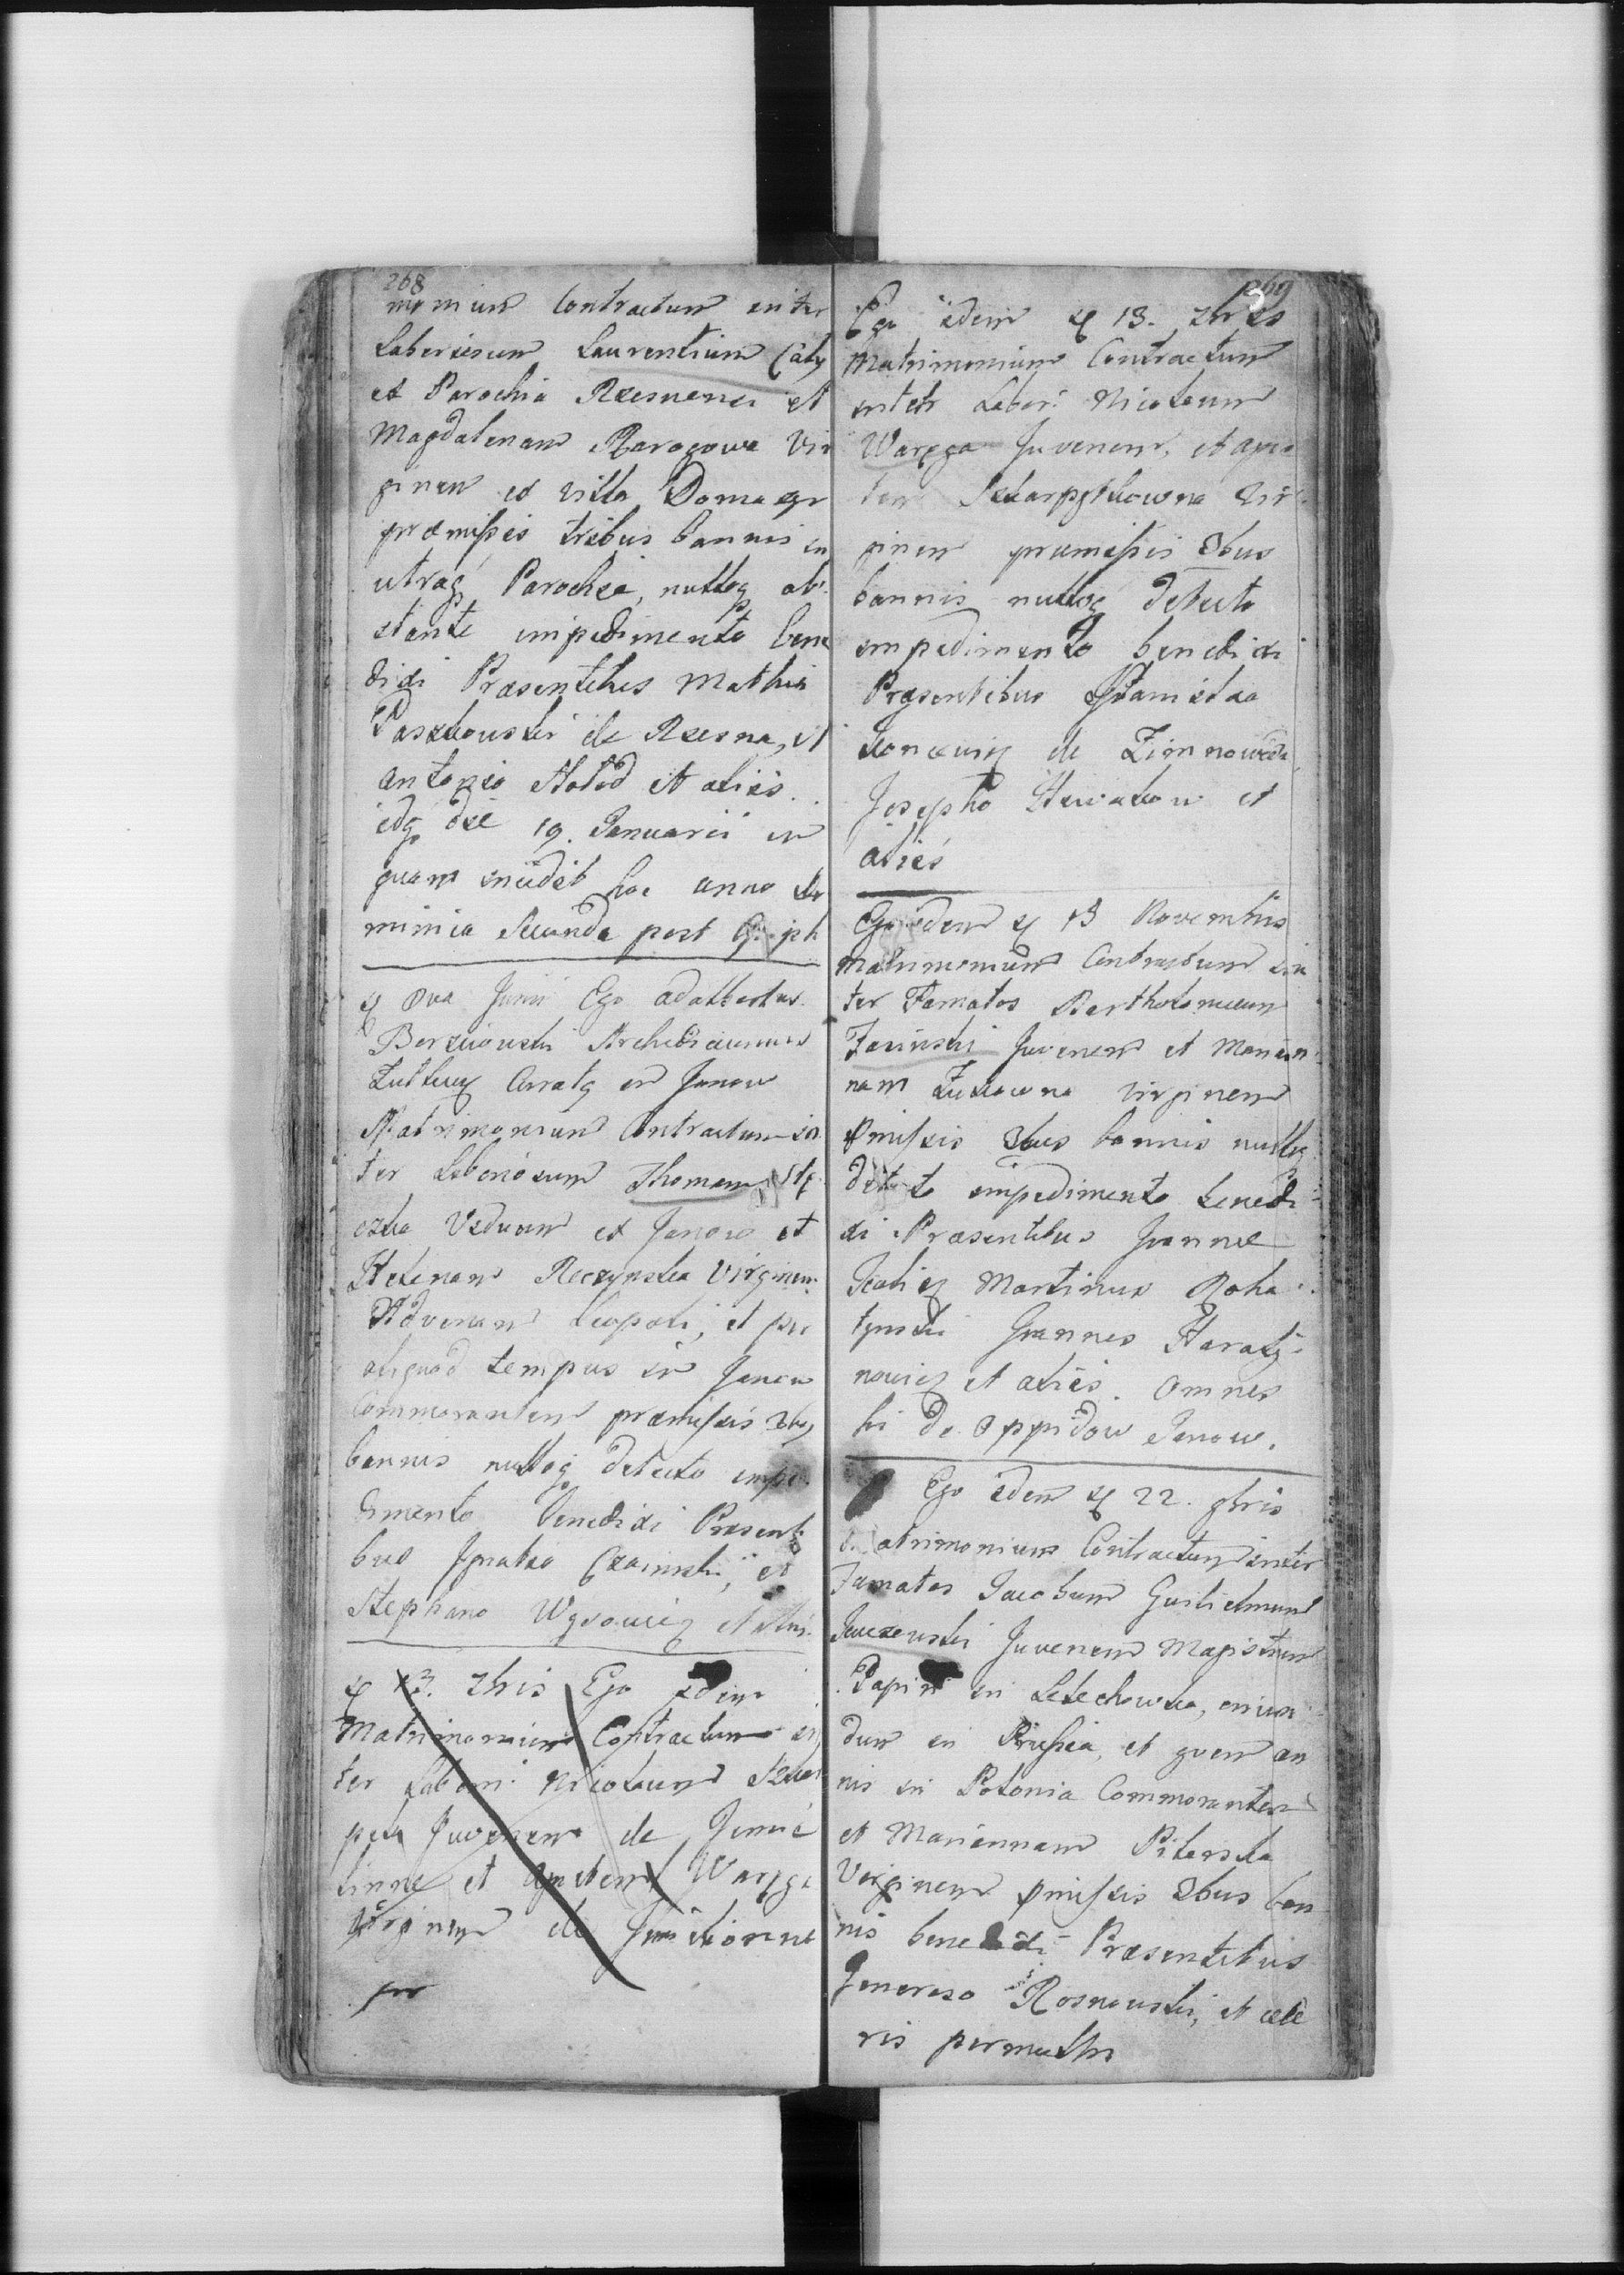 268
monium Contractum inter
Laboriosum Laurentium Caly
ex Parochia Rzesnensi et
Magdalenam Rarogowa Vir
ginem ex villa Domazyr
præmissis tribus bannis in
utraq Parochia, nulloq ob
stante impedimento bene
dixi Præsentibus Mathia
Paszkowski de Rzesna, et
Antonio Hołod et aliis
idq die 19. Januarii in
quam incidit hoc anno Do
minica Secunda post Epiph
Dva Junii Ego Adalbertus
Archidiaconus
Curatq in Janow
Matrimonium Contractum in
ter Laboriosum Thomam
Viduum ex Janow et
Helenam Reczynska Virginem
Advenam Leopoli, et per
aliquod tempus in Janow
Commorantem præmissis 3bus
bannis nulloq detecto impe
dimento benedixi Præsenti
bus Ignatio Czainski, et
Stephano Wąsowicz et aliis.
13. Ego idem
Matrimonium Contractum in
ter Labori. Nicolaum
Juvenem de
et Agnetem Waręga
Virginem de
pr
269
Ego idem 13.
Matrimonium Contractum
inter Labori. Nicolaum
Waręga Juvenem, et Agne
tem Virginem
ginem præmissis 3bus
bannis nulloq detecto
impedimento benedixi
Præsentibus Stanislao
de Zimnowoda
Josepho et
aliis
Ego idem 13 Novembris
Matrimonium Contractum in
ter Famatos Bartholomæum
Juvenem et Marian
nam Virginem
pmissis 3bus bannis nulloq
detecto impedimento bened
xi Præsentibus Joanne
Martinus Roha
tynski Joannes Haraty
nowicz et aliis. Omnes
hi de Oppidow Janow.
Ego idem 22. 9bris
Matrimonium Contractum inter
Famatos Jacobum Guilielmum
Juvenem Magistrum
in Lelechowka, oriun
dum in Prussia, et quem an
nis in Polonia Commorantem
et Mariannam Piterska
Virginem pmissis 3bus ban
nis benedixi Præsentibus
Generoso Rosnowski, et cæte
ris permultis